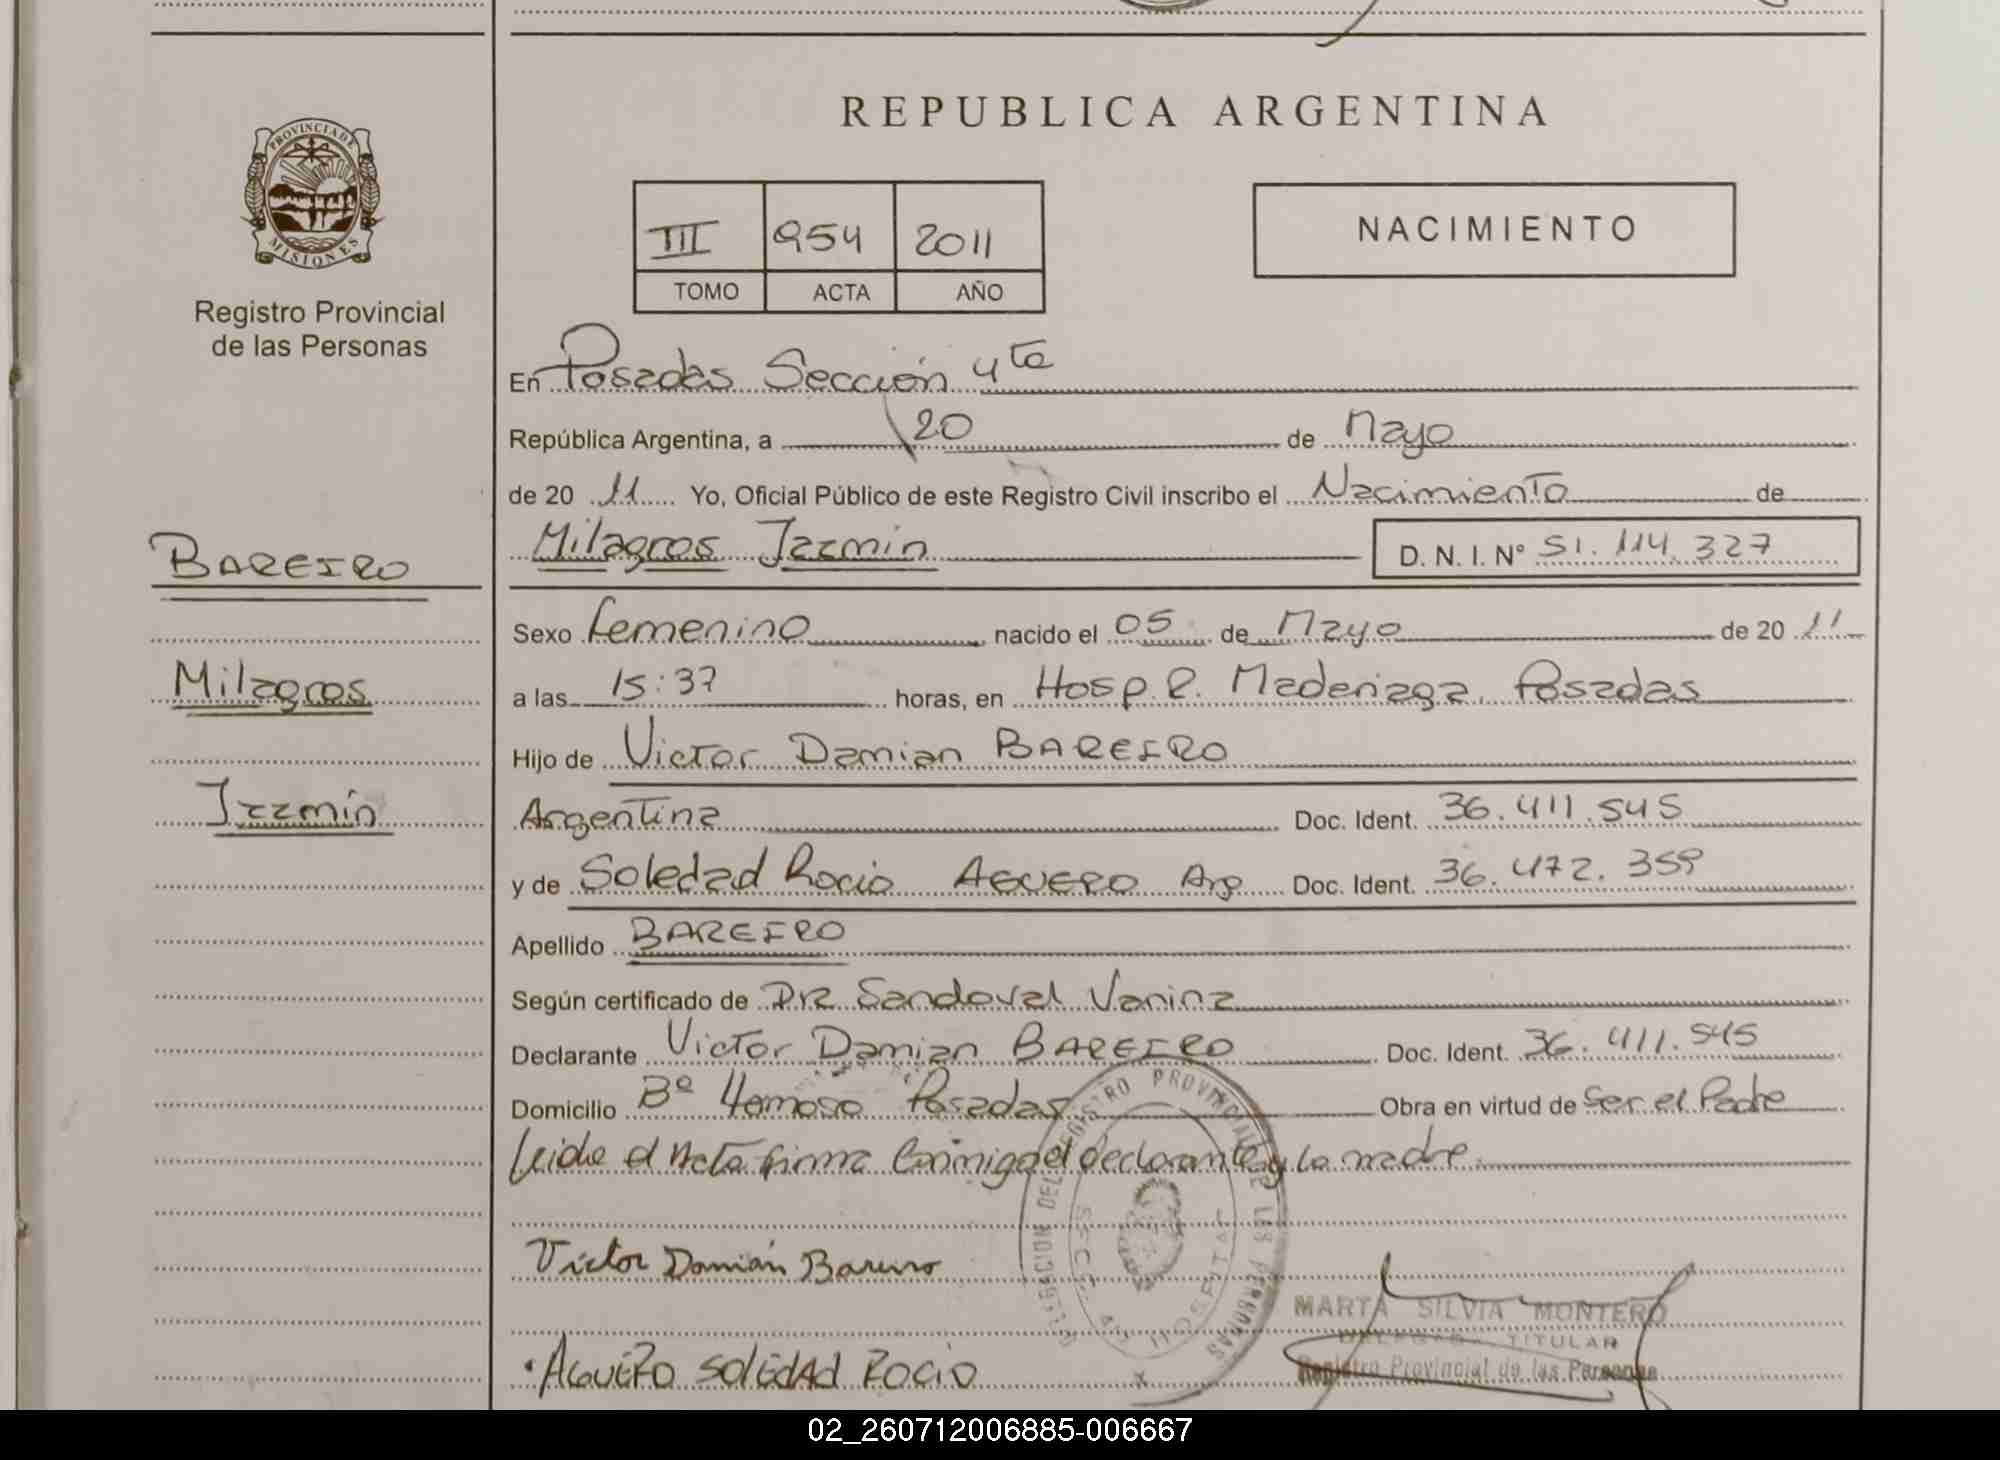 REPUBLICA ARGENTINA
PROVINCIA DE MISIONES
Registro Provincial
de las Personas
III 954 2011
TOMO ACTA AÑO
NACIMIENTO
En Posadas Sección 4ta
República Argentina, a 20 de Mayo
de 20 11 Yo, Oficial Público de este Registro Civil inscribo el Nacimiento de
Milagros Jazmín
D. N. I. N° 51.114.327
BAREIRO
Milagros
Jazmín
Sexo femenino nacido el 05 de Mayo de 20 11
a las 15:37 horas, en Hosp. R. Madariaga. Posadas
Hijo de Victor Damian BAREIRO
Argentina Doc. Ident. 36.411.545
y de Soledad Rocio AGUERO Arg Doc. Ident. 36.472.359
Apellido BAREIRO
Según certificado de Dra Sandoval Vanina
Declarante Victor Damian BAREIRO Doc. Ident. 36.411.545
Domicilio Bº Hermoso Posadas Obra en virtud de Ser el Padre
leida el Acta firma Conmigo el declarante y la madre
Víctor Damián Bareiro
AGUERO SOLEDAD ROCIO
DELEGACION DEL REGISTRO PROVINCIAL DE LAS PERSONAS
SECC. 4ta HOSPITAL
MARTA SILVIA MONTERO
DELEGADA TITULAR
Registro Provincial de las Personas
02_260712006885-006667